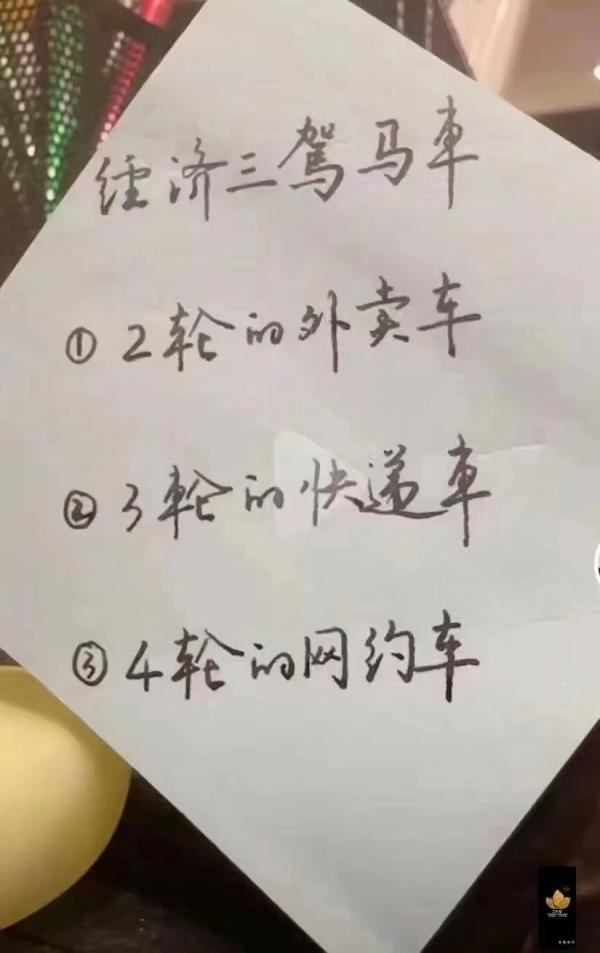 经济三驾马車
① 2轮的外卖车
② 3轮的快递車
③ 4轮的网约车